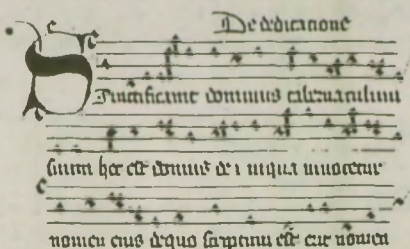 De dedicatione
Sanctificavit dominus tabernaculum
suum hec est domus de i in qua invocetur
nomen eius de quo scriptum est erit nomen